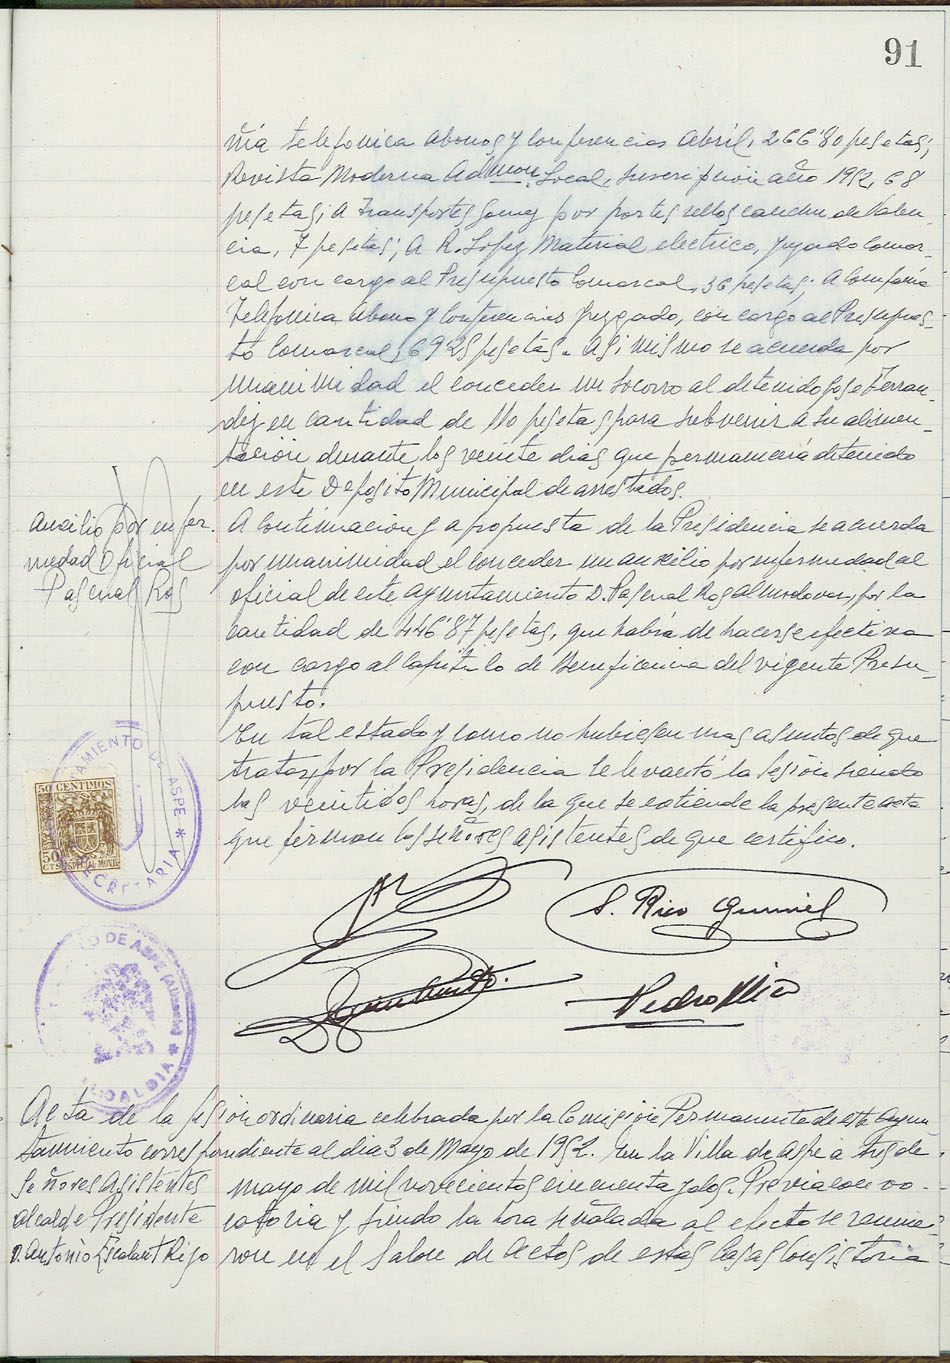 91
ñía telefonica abonos y conferencias Abril, 266'80 pesetas;
Revista Moderna Admon. Local, suscripcion año 1952, 68
pesetas; a Transportes Gomez por portes sellos cauchu de Valen-
cia, 7 pesetas; a R. Lopez, Material electrico, Juzgado Comar-
cal con cargo al Presupuesto Comarcal, 36 pesetas; A Compañia
Telefonica Abono y Conferencias Juzgado, con cargo al Presupues-
to Comarcal, 69'25 pesetas. Asi mismo se acuerda por
unanimidad el conceder un socorro al detenido Jose Ferran-
dez en cantidad de 110 pesetas para subvenir a su alimen-
tacion durante los veinte dias que permanecerá detenido
en este Deposito Municipal de arrestados.
Auxilio por enfer-
medad Oficial
Pascual Ros
A continuacion y a propuesta de la Presidencia se acuerda
por unanimidad el conceder un auxilio por enfermedad al
oficial de este ayuntamiento D. Pascual Ros Almodovar, por la
cantidad de 446'87 pesetas, que habrá de hacerse efectiva
con cargo al Capitulo de Beneficencia del vigente Presu-
puesto.
En tal estado y como no hubiesen mas asuntos de que
tratar, por la Presidencia se levantó la sesion siendo
las veintidos horas, de la que se extiende la presente acta
que firman los señores asistentes de que certifico.
AYUNTAMIENTO DE ASPE * SECRETARIA *
50 CENTIMOS
50 CTS ESPECIAL MOVIL
DE ASPE (Alicante) * ALCALDIA *
S. Rico
Pedro Mico
Acta de la sesion ordinaria celebrada por la Comision Permanente de este Ayun-
tamiento correspondiente al dia 3 de Mayo de 1952.
Señores Asistentes
Alcalde Presidente
D. Antonio Escalant Rigo
En la Villa de Aspe a tres de
mayo de mil novecientos cincuenta y dos. Previa convo-
catoria y siendo la hora señalada al efecto se reunie-
ron en el Salon de Actos de estas Casas Consistoria